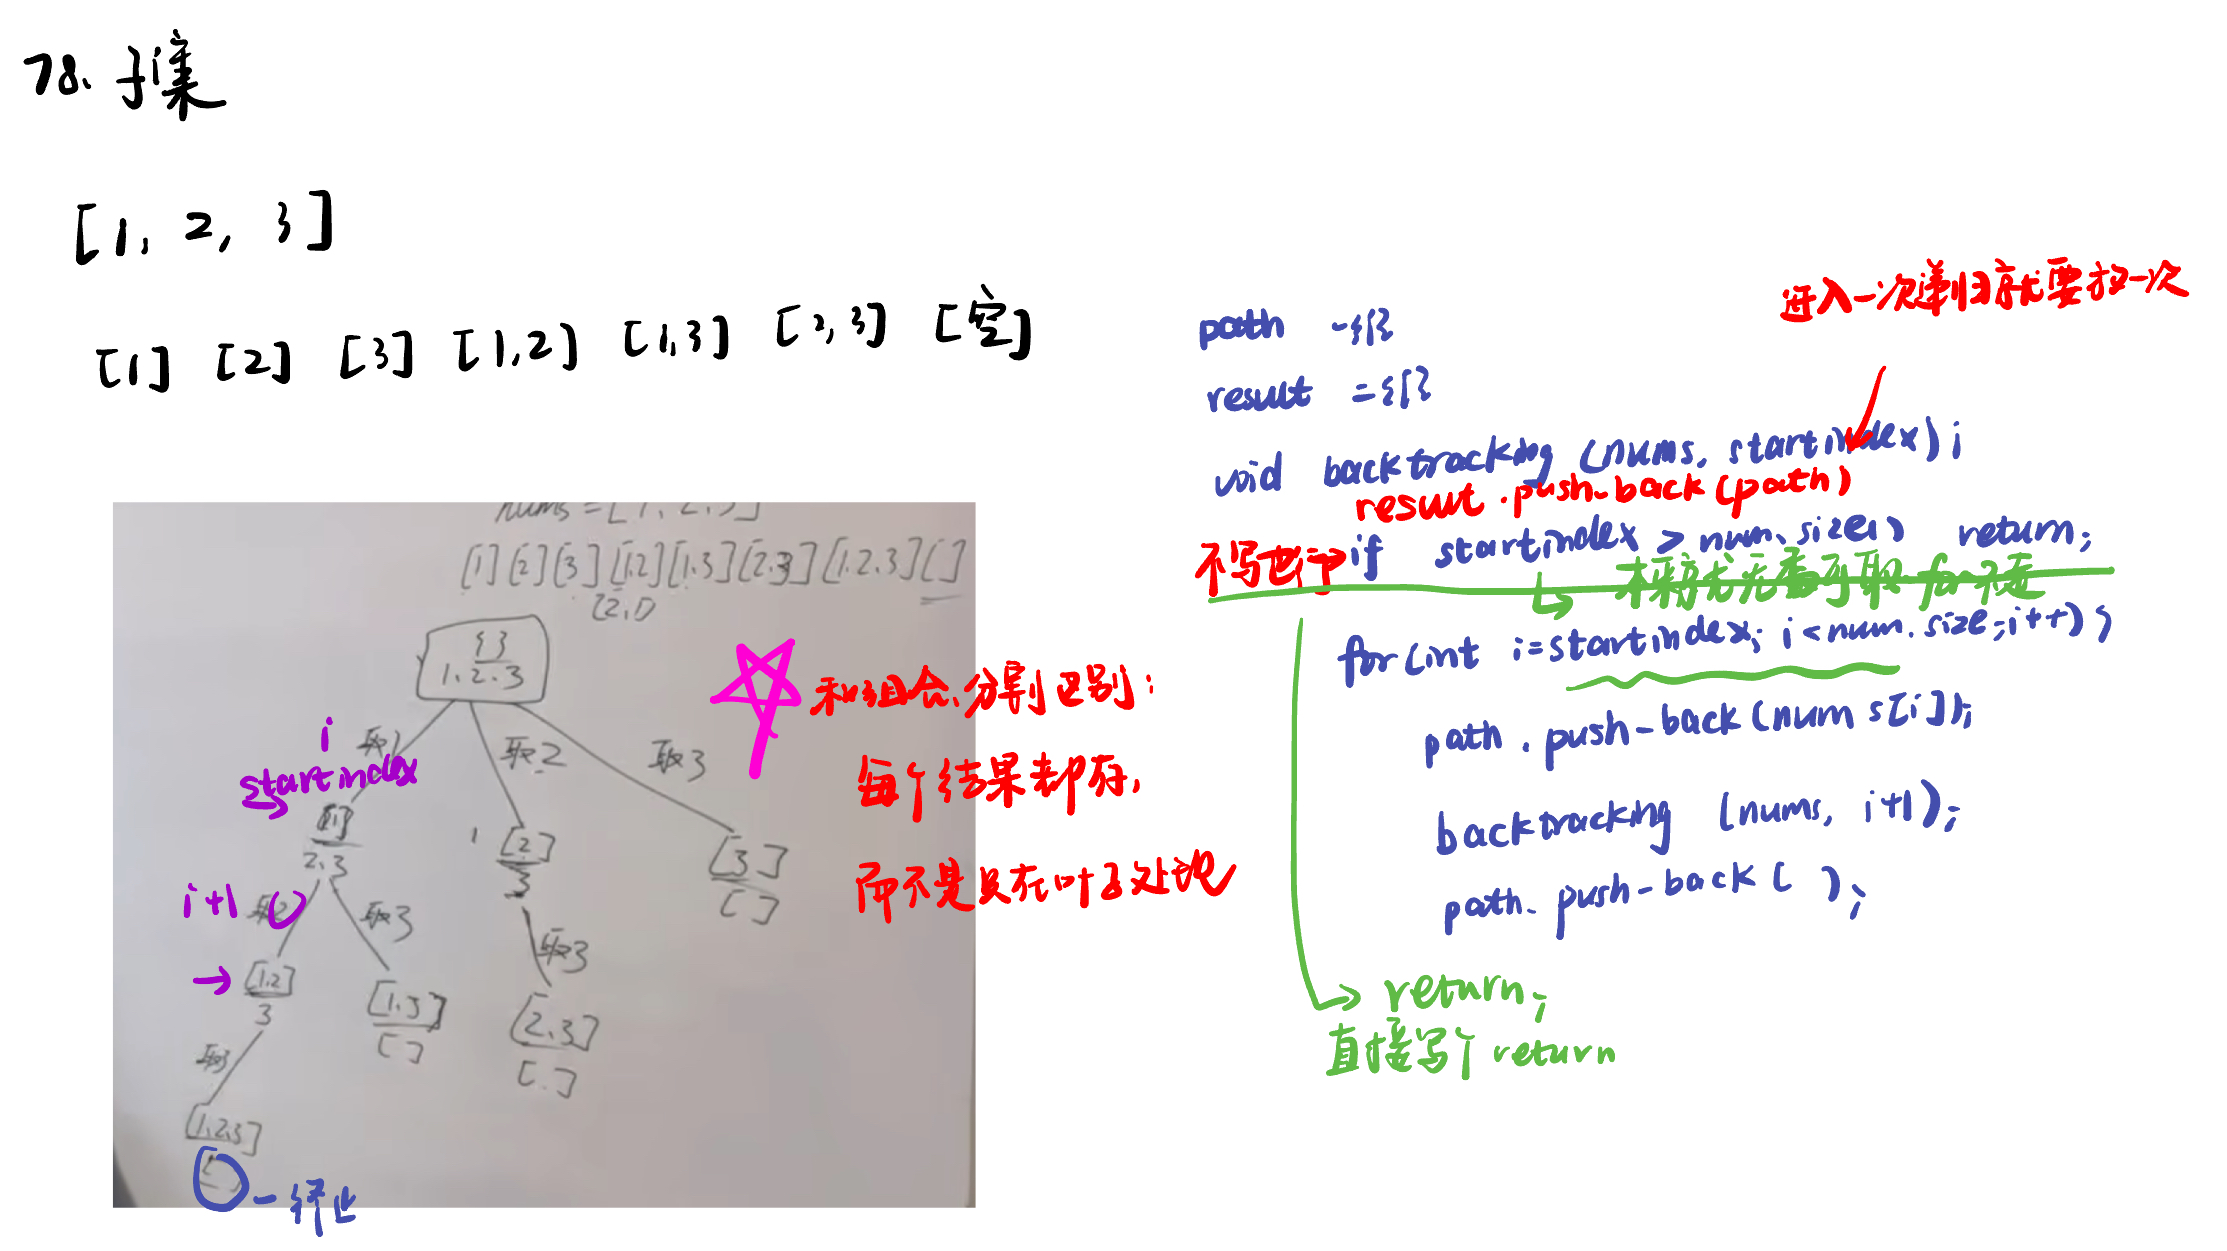 78. 子集
[1, 2, 3]
[1] [2] [3] [1,2] [1,3] [2,3] [空]
nums = [1, 2, 3]
[1] [2] [3] [1,2] [1,3] [2,3] [1,2,3] [ ]
[2,1]
{ }
1.2.3
取1
取2
取3
i
startindex
[1]
2.3
[2]
3
[3]
[ ]
i+1
取2
取3
取3
→ [1,2]
3
[1,3]
[ ]
[2,3]
[ ]
取3
[1,2,3]
[ ]
- 终止
和组合、分割区别:
每个结果都存,
而不是只在叶子处理
进入一次递归就要放一次
path = {}
result = {}
void backtracking (nums, startindex);
result.push-back(path)
不写也行 if startindex > num.size() return;
↳ 本来就无可取 for 不走
for(int i=startindex; i<num.size;i++);
path.push-back(nums[i]);
backtracking (nums, i+1);
path.push-back( );
→ return;
直接写个return